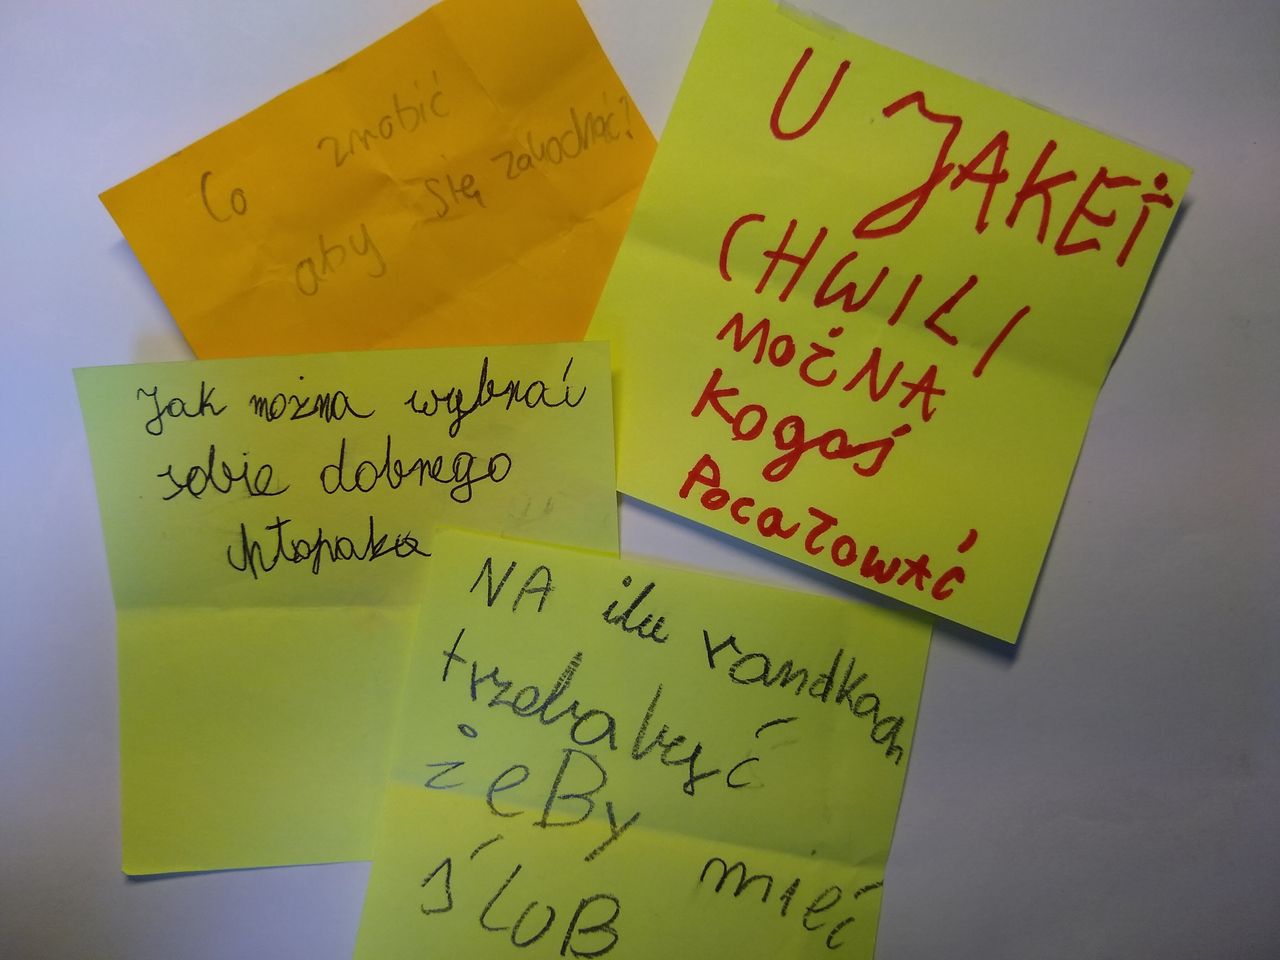 Co zrobić
aby się zakochać?
U JAKEİ
CHWILI
MOŻNA
Kogoś
Pocałować
Jak można wybrać
sobie dobrego
chłopaka
NA ilu randkach
trzeba być
żeBy mieć
ślUB